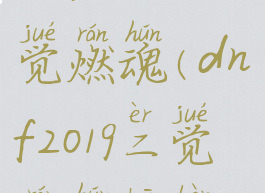 jué rán hún
觉燃魂(dn
èr jué
f2019二觉